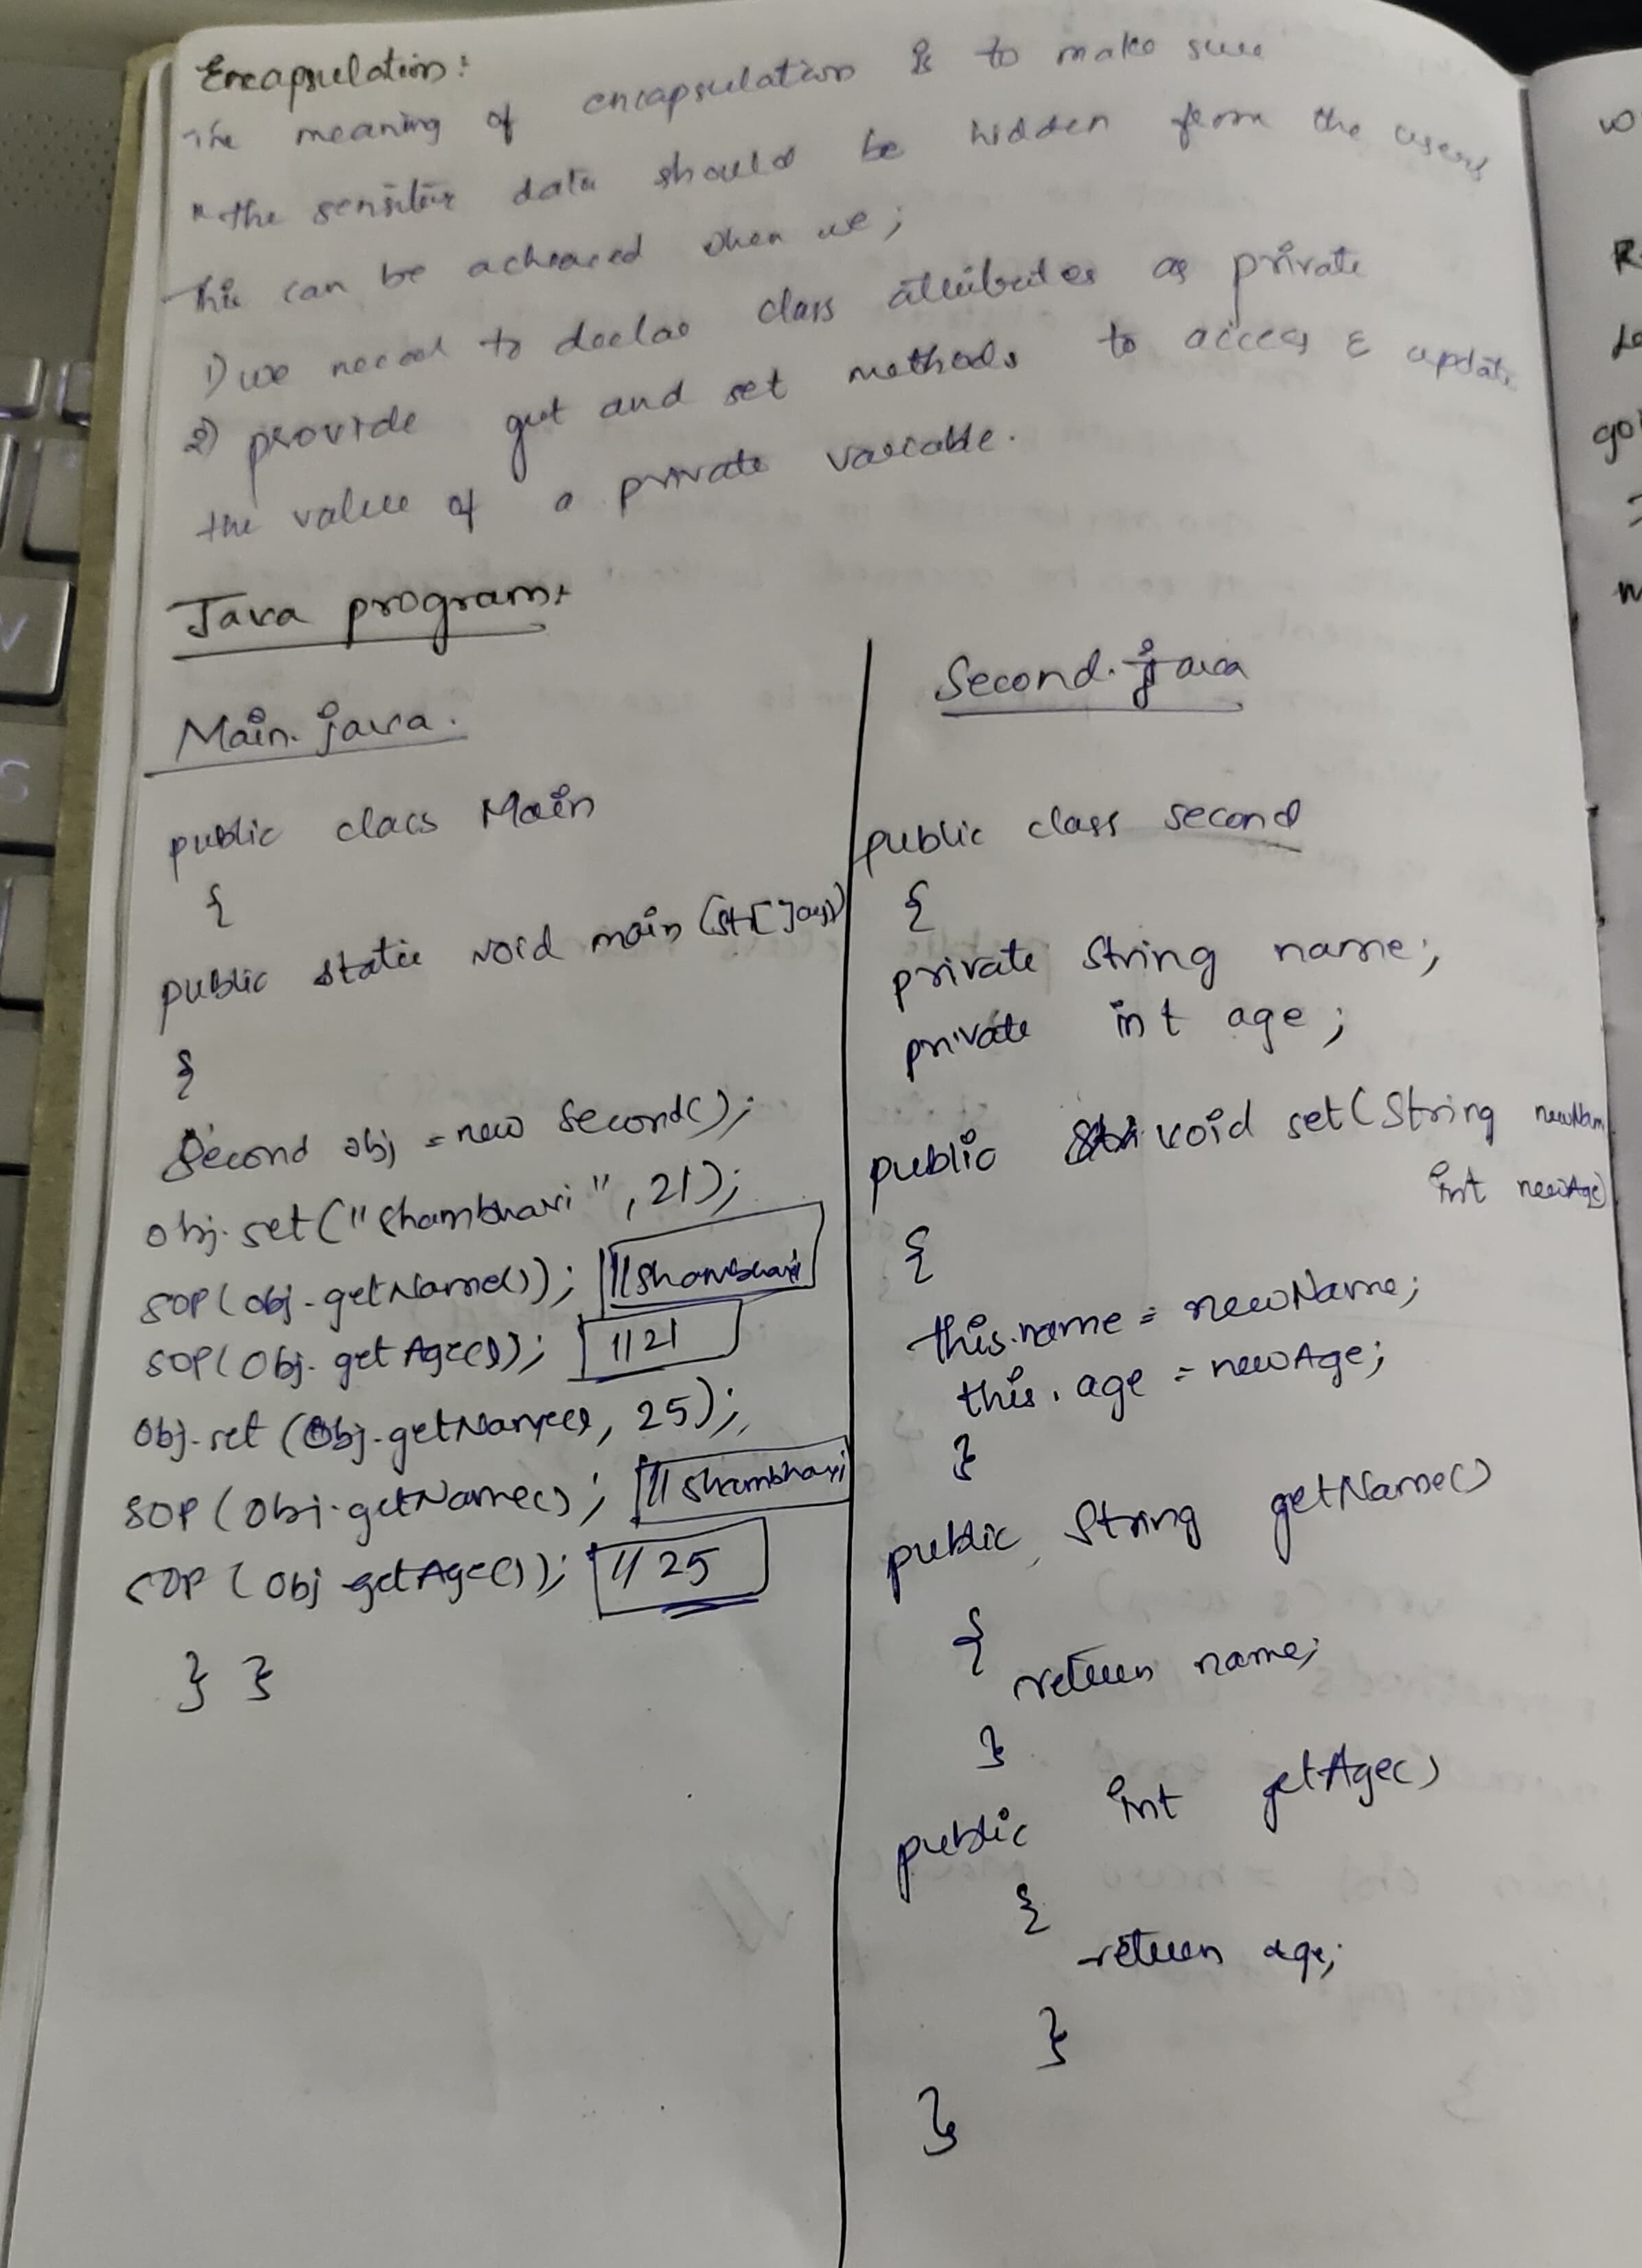 Encapsulation:
The meaning of encapsulation is to make sure
* the sensitive data should be hidden from the users
This can be achieved when we;
1) we need to declae class attributes as private
2) provide get and set methods to access & update
the value of a private variable.
Java program:
Main.java.
public class Main
{
public static void main (St[] args)
{
Second obj = new Second();
obj.set("Shambhavi", 21);
SOP(obj.getName()); //Shambhavi
SOP(Obj.getAge()); //21
Obj.set (Obj.getName(), 25);
SOP (Obj.getName(); //Shambhavi
SOP (Obj.getAge()); //25
} }
Second.java
public class second
{
private String name;
private int age;
public void set(String newNam
int newAge)
{
this.name = newName;
this.age = newAge;
}
public String getName()
{
return name;
}
public int getAge()
{
return age;
}
}
wo
R
go